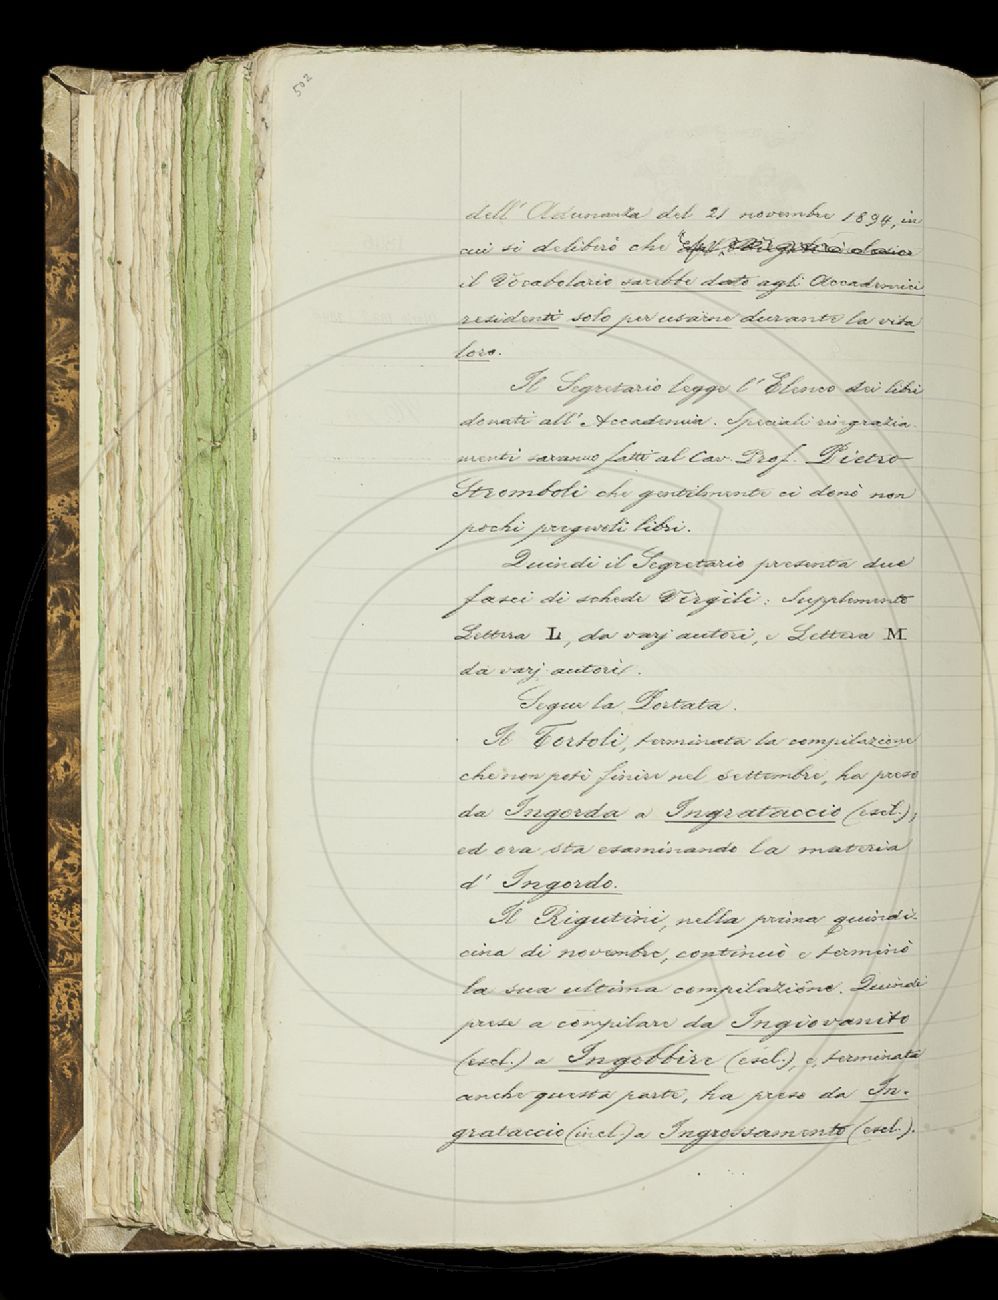 502
dell' Adunanza del 21 novembre 1894, in
cui si deliberò che
il Vocabolario sarebbe dato agli Accademici
residenti solo per usarne durante la vita
loro.
Il Segretario legge l' Elenco dei libri
donati all' Accademia. Speciali ringrazia-
menti saranno fatti al Cav. Prof. Pietro
Stromboli che gentilmente ci donò non
pochi pregevoli libri.
Quindi il Segretario presenta due
fasci di schede Virgili: Supplemento
Lettera L, da varj autori, e Lettera M
da varj autori.
Segue la Portata.
Il Tortoli, terminata la compilazione
che non potè finire nel settembre, ha preso
da Ingorda a Ingrataccio (escl.);
ed ora sta esaminando la materia
d' Ingordo.
Il Rigutini, nella prima quindi-
cina di novembre, continuò e terminò
la sua ultima compilazione. Quindi
prese a compilare da Ingiovanito
(escl.) a Ingobbire (escl.), e, terminata
anche questa parte, ha preso da In-
grataccio (incl.) a Ingrossamento (escl.).